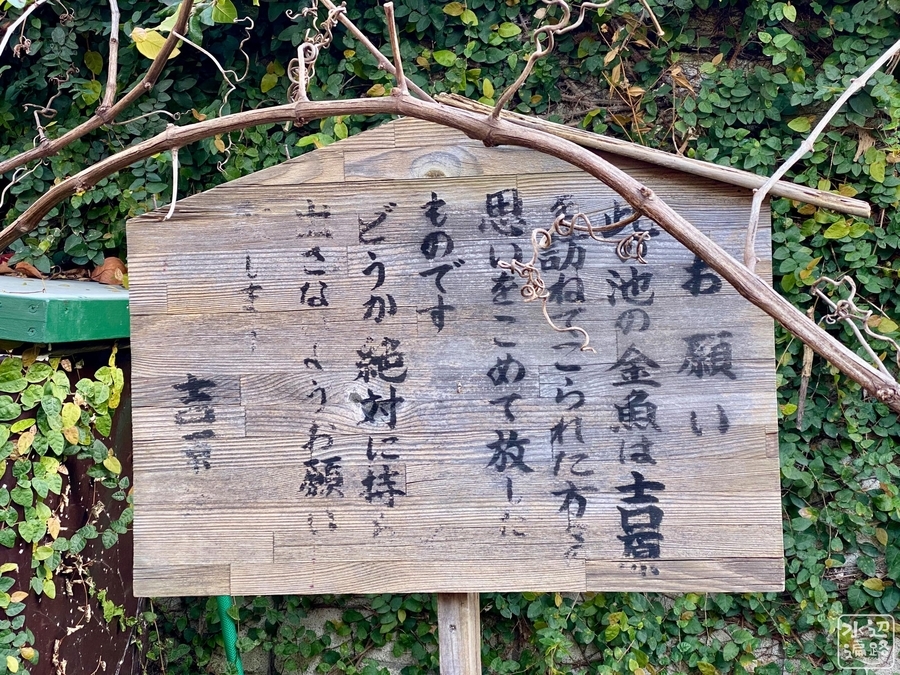 お願い
此池の金魚は吉原
を訪ねてこられた方
思いをこめて放した
ものです
どうか絶対に持ち
出さな ようお願い
します
吉原
水辺遍路